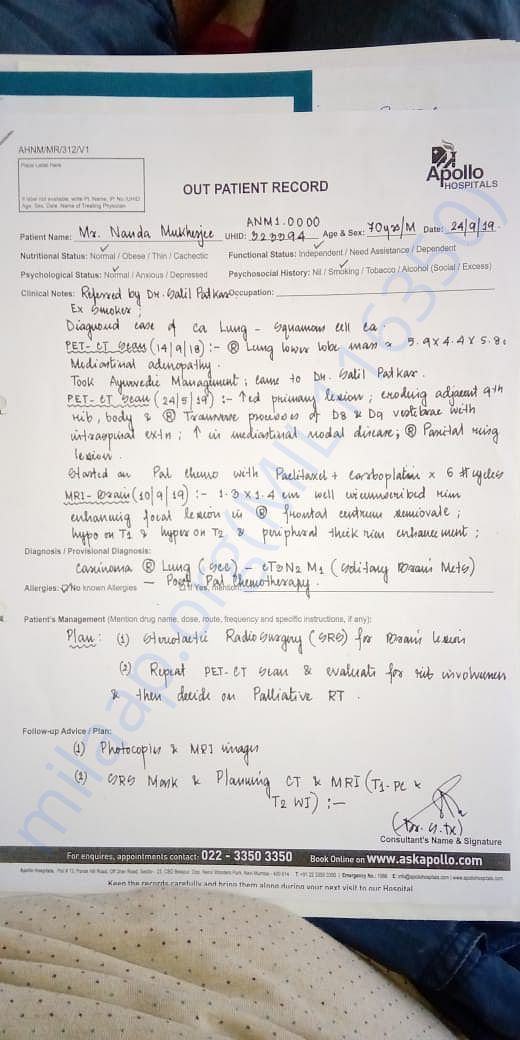 AHNM/MR/312/V1
Place Label Here
If label not available, write Pt. Name, Pt No (UHID)
Age, Sex, Date, Name of Treating Physician
OUT PATIENT RECORD
Apollo
HOSPITALS
ANM1.0000
Patient Name: Mr. Nanda Mukherjee UHID: 323394 Age & Sex: 70yrs/M Date: 24/9/19.
Nutritional Status: Normal / Obese / Thin / Cachectic Functional Status: Independent / Need Assistance / Dependent
Psychological Status: Normal / Anxious / Depressed Psychosocial History: Nil / Smoking / Tobacco / Alcohol (Social / Excess)
Clinical Notes: Referred by Dr. Salil Patkar Occupation:
Ex Smoker;
Diagnosed case of Ca Lung - Squamous cell ca.
PET-CT Scan (14/9/18) :- (R) Lung lower lobe mass ~ 5.9 x 4.4 x 5.8c
Mediastinal adenopathy.
Took Ayurvedic Management; came to Dr. Salil Patkar.
PET-CT Scan (24/5/19) :- ↑ed primary lesion; eroding adjacent 9th
rib, body & (R) Transverse processes of D8 & D9 vertebrae with
intraspinal extn; ↑ in mediastinal nodal disease; (R) Parietal ring
lesion.
Started on Pal chemo with Paclitaxel + Carboplatin x 6 # cycles
MRI-Brain (10/9/19) :- 1.3 x 1.4 cm well circumscribed rim
enhancing focal lesion in (R) frontal centrum semiovale;
hypo on T1 & hyper on T2 & peripheral thick rim enhancement;
Diagnosis / Provisional Diagnosis:
Carcinoma (R) Lung (SCC) - cT3N2 M1 (Solitary Brain Mets)
- Post Pal Chemotherapy.
Allergies: No known Allergies If Yes, mention
Patient's Management (Mention drug name, dose, route, frequency and specific instructions, if any):
Plan: (1) Stereotactic Radiosurgery (SRS) for Brain lesion
(2) Repeat PET-CT scan & evaluate for rib involvemen
& then decide on Palliative RT.
Follow-up Advice / Plan:
(1) Photocopies & MRI images
(2) SRS Mask & Planning CT & MRI (T1-PC &
T2 WI) :-
Consultant's Name & Signature
For enquires, appointments contact: 022 - 3350 3350 Book Online on www.askapollo.com
Keep the records carefully and bring them along during your next visit to our Hospital
milaap.org(MIL116350)